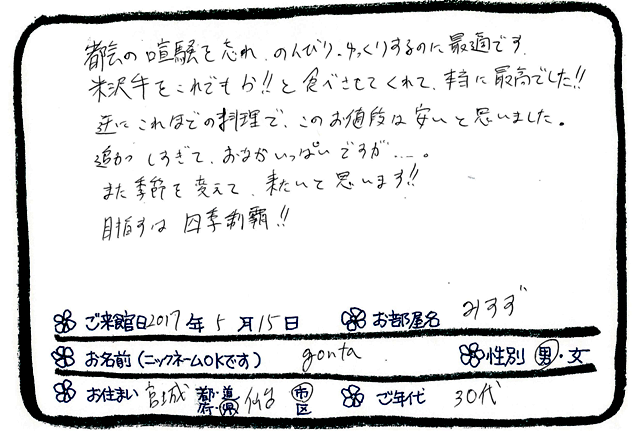 都会の喧騒を忘れ、のんびり、ゆっくりするのに最適です。
米沢牛をこれでもか!!と食べさせてくれて、本当に最高でした!!
逆にこれほどの料理で、このお値段は安いと思いました。
追加しすぎて、おなかいっぱいですが…。
また季節を変えて、来たいと思います!!
目指すは四季制覇!!
ご来館日 2017年 5月 15日 お部屋名 みすず
お名前(ニックネームOKです) gonta 性別 男・女
お住まい 宮城 都・道・府・県 仙台 市 区 ご年代 30代